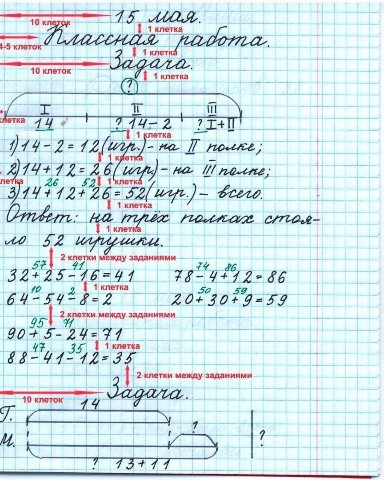 10 клеток 15 мая.
1 клетка
4-5 клеток Классная работа.
1 клетка
10 клеток Задача.
1 клетка
?
I II III
клетка 14 ? 14-2 ? I+II
1) 14-2=12(игр.)-на II полке;
1 клетка
2) 14+12=26(игр.)-на III полке;
клетка 26 52 1 клетка
3) 14+12+26=52(игр.)- всего.
1 клетка
Ответ: на трёх полках стоя-
1 клетка
ло 52 игрушки.
2 клетки между заданиями
57 41 74 86
32+25-16=41 78-4+12=86
10 2 50 59
64-54-8=2 20+30+9=59
2 клетки между заданиями
95 71
90+5-24=71
47 35 1 клетка
88-41-12=35
2 клетки между заданиями
10 клеток Задача.
14
Т.
1
М. ?
? 13+11